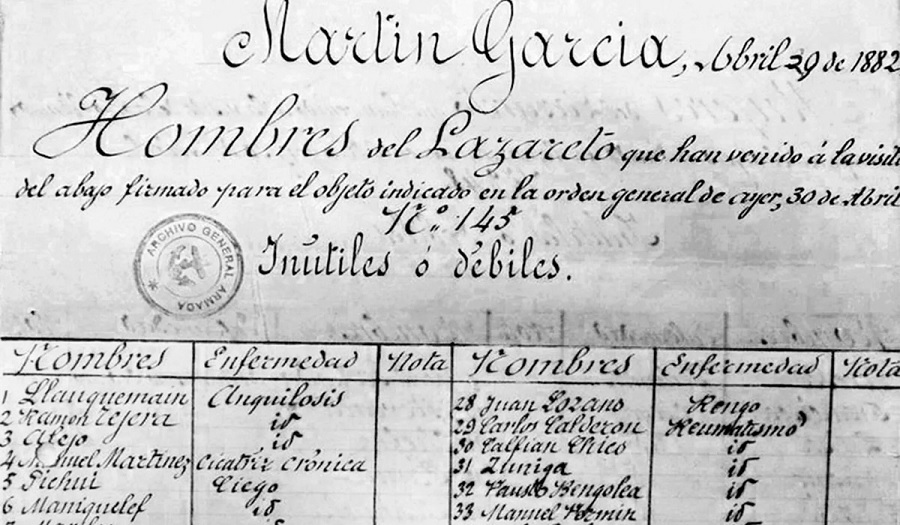 Martin Garcia, Abril 29 de 1882
Hombres del Lazareto que han venido á la visit
del abajo firmado para el objeto indicado en la orden general de ayer, 30 de Abril
Nº. 145
ARCHIVO GENERAL ARMADA
Inútiles ó débiles.
Hombres Enfermedad Nota Hombres Enfermedad Nota
1 Llauquemain Anquilosis 28 Juan Lozano Rengo
2 Ramon Tejera id 29 Carlos Calderon Reumatismo
3 Atejo id 30 Calfian Chico id
4 Manuel Martinez Cicatriz crónica 31 Zuniga id
5 Pichui Ciego 32 Fausto Bengolea id
6 Maniquelef id 33 Manuel